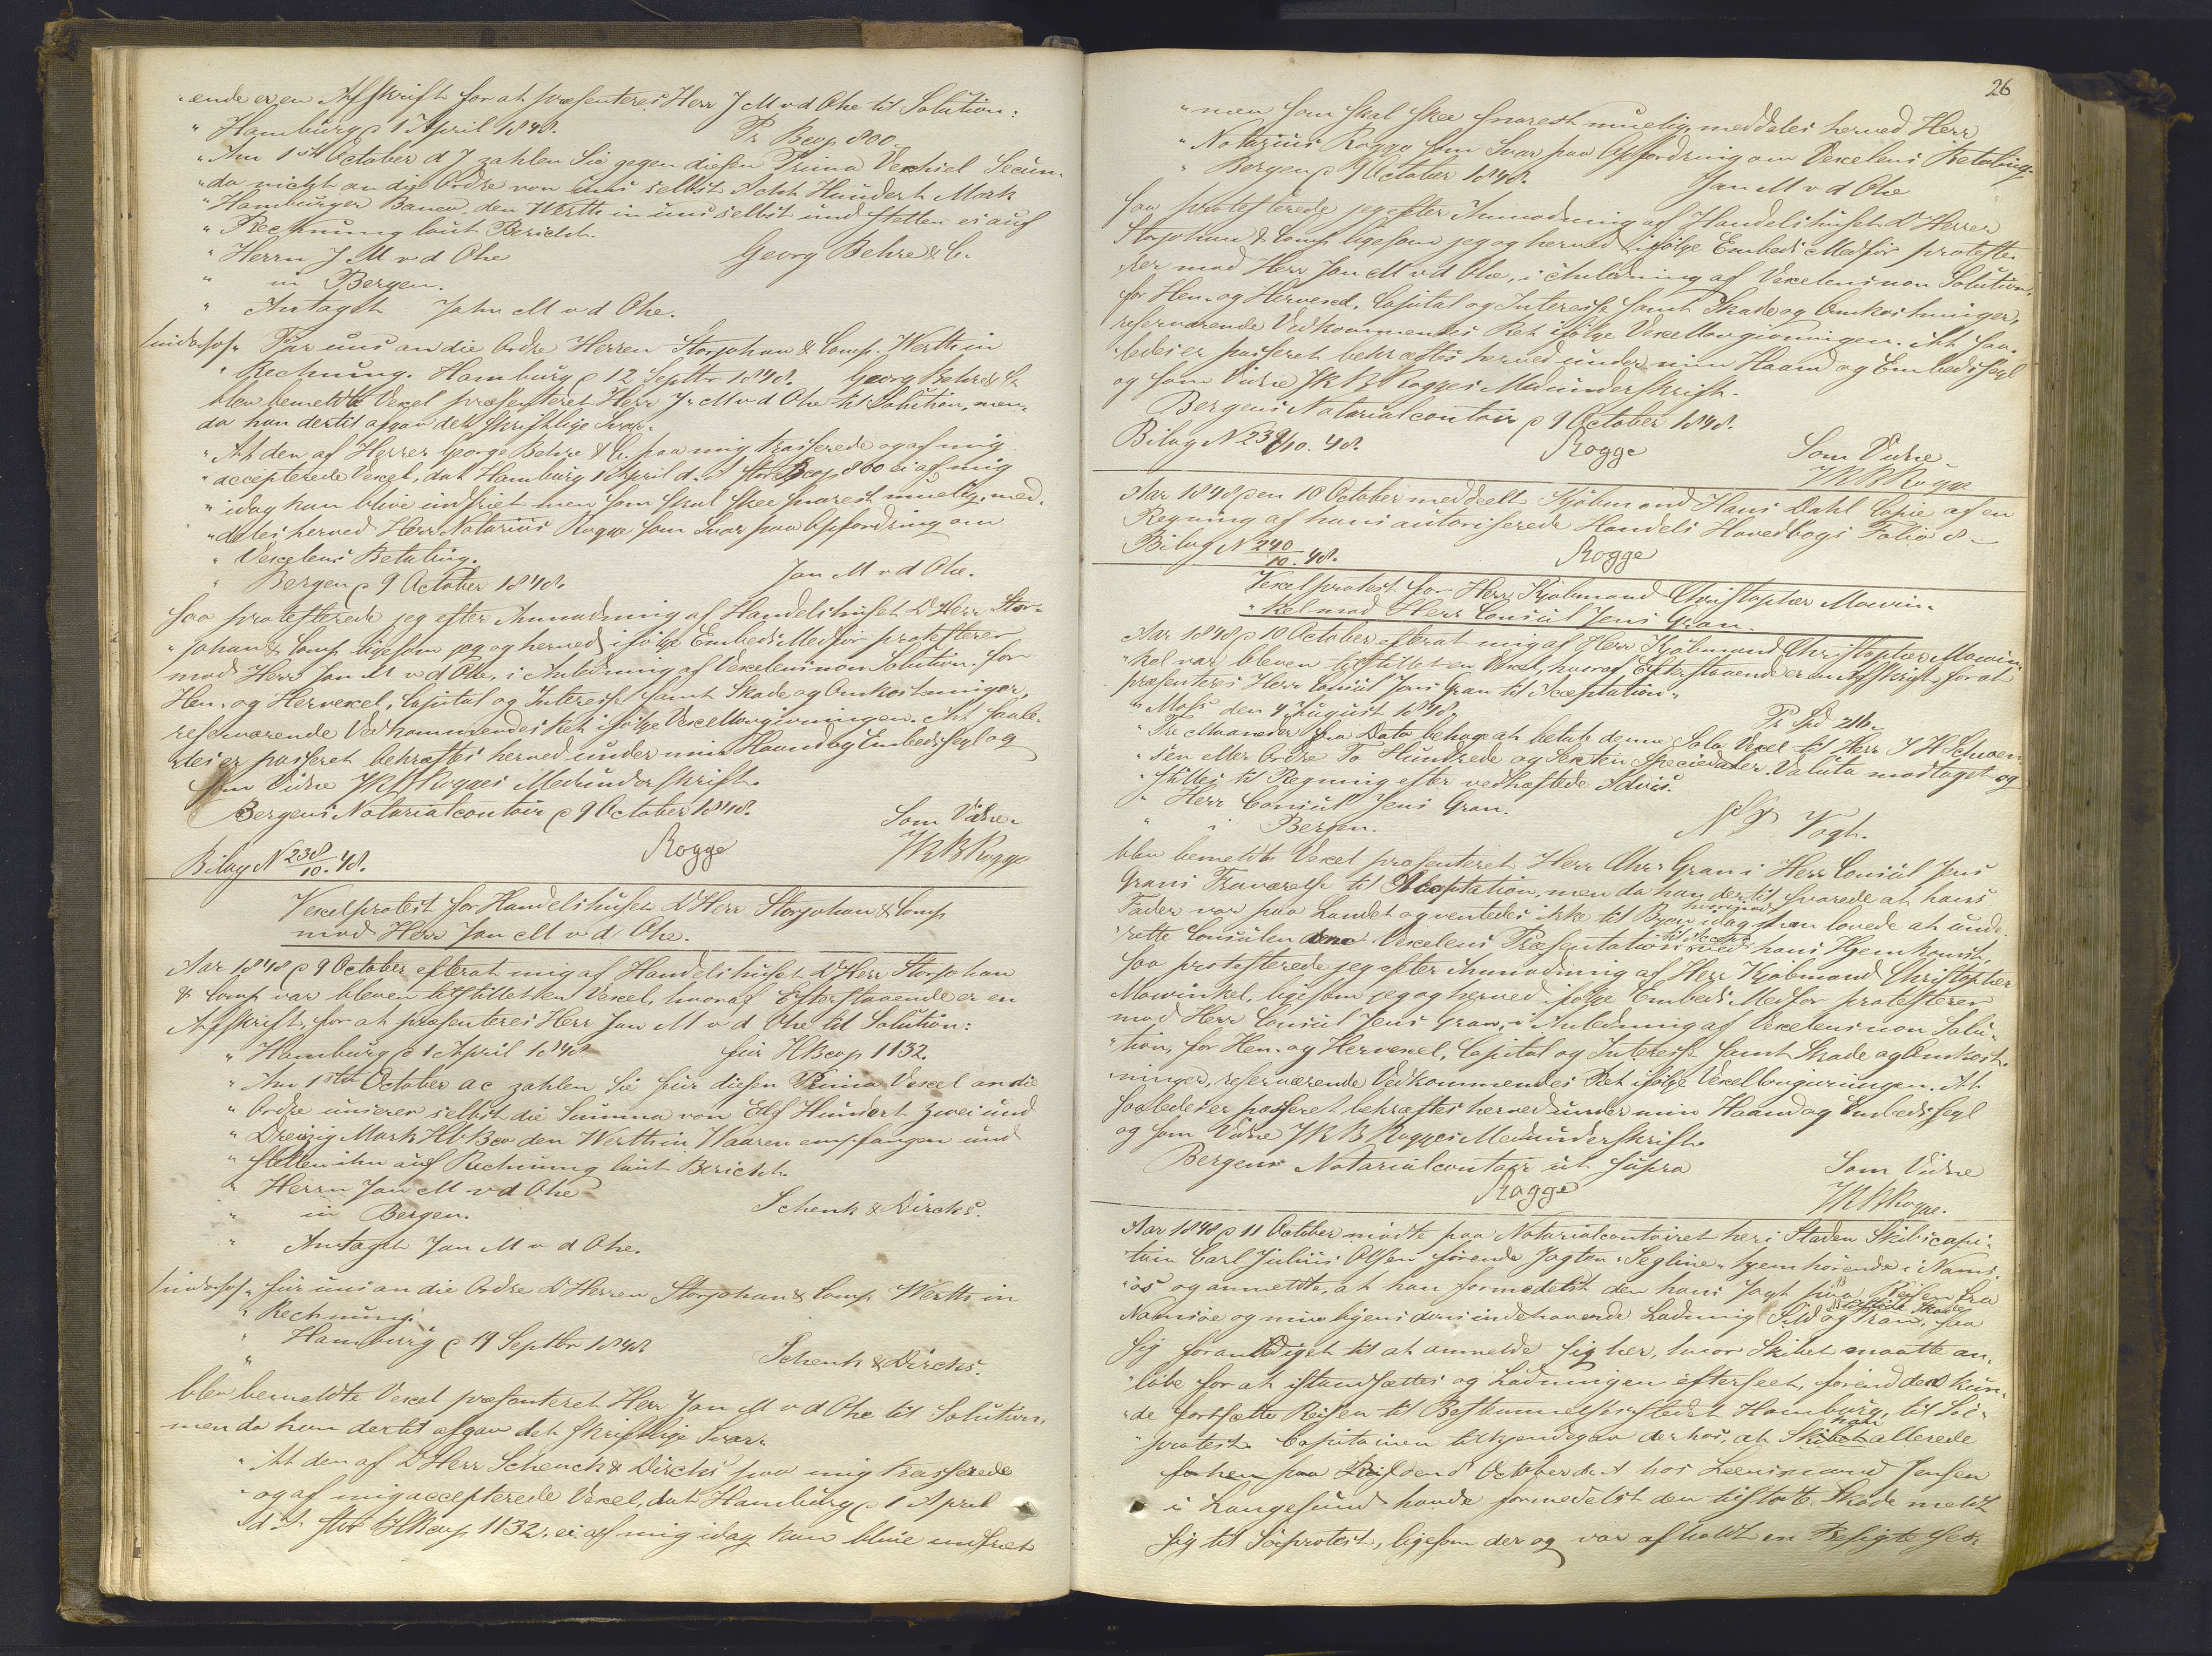 ende er en Afskrift for at præsenteres Herr J M v d Ohe til Solution:
" Hamburg p 1 April 1848. Pr Bco/. 800.
" Am 1st October d J zahlen Sie gegen diesen Prima Wechsel Secun-
" da nicht an die Ordre von uns selbst Acht Hundert Mark
" Hamburger Banco, den Werth in uns selbst und stellen es auf
" Rechnung laut Bericht.
" Herrn J M v d Ohe Georg Behre & C.
" in Bergen.
" Antaget John M v d Ohe.
" Für uns an die Ordre Herren Storjohan & Comp. Werth in
" Rechnung. Hamburg p 12 Septbr 1848. Georg Behre & C
blev bemeldte Vexel præsenteret Herr J. M v d Ohe til Solution, men
da han dertil afgav det skriftlige Svar:
" At den af Herrer George Behre & C. paa mig trasserede og af mig
" accepterede Vexel, dat Hamburg 1 April d. A stor Bco/. 800 ei af mig
" idag kan blive indfriet men som skal skee snarest muelig, med-
" deles herved Herr Notarius Rogge som Svar paa Opfordring om
" Vexelens Betaling.
" Bergen p 9 October 1848. Jan M v d Ohe.
saa protesterede jeg efter Anmodning af Handelshuset D'Herr Stor-
" johan & Comp ligesom jeg og herved ifølge Embeds Medfør protesterer
mod Herr Jan M v d Ohe, i Anledning af Vexelens non Solution, for
Hen- og Hervexel, Capital og Interesse samt Skade og Omkostninger,
reserverende Vedkommendes Ret ifølge Vexellovgivningen. At saale-
des er passeret bekræftes herved under min Haand og Embedssegl og
som Vidne J R B Rogges Medunderskrift.
Bergens Notarialcontoir p 9 October 1848.
Som Vidne
Bilag N 238/10. 48. Rogge J R B Rogge
Vexelprotest for Handelshuset D'Herr Storjohan & Comp
mod Herr Jan M v d Ohe.
Aar 1848 p 9 October, efterat mig af Handelshuset D'Herr Storjohan
& Comp var bleven tilstillet en Vexel, hvoraf Efterstaaende er en
Afskrift, for at præsenteres Herr Jan M v d Ohe til Solution:
" Hamburg p 1 April 1848 für HBco/. 1132.
" Am 1sten October ac zahlen Sie für diesen Prima Vexel an die
" Ordre unserer selbst die Summa von Elf Hundert zwei und
" Dreizig Mark Hb Bco den Werth in Waaren empfangen und
" stellen ihn auf Rechnung laut Bericht.
" Herrn Jan M v d Ohe
" in Bergen. Schenk & Dircks.
" Antaget Jan M v d Ohe.
" für uns an die Ordre D'Herren Storjohan & Comp Werth in
" Rechnung.
" Hamburg p 19 Septbr 1848
" Schenk & Dircks.
blev bemeldte Vexel præsenteret Herr Jan M v d Ohe til Solution,
men da han dertil afgav det skriftlige Svar:
" At den af D'Herr Schenck & Dircks paa mig trasserede
" og af mig accepterede Vexel, dat Hamburg p 1 April
d. A. stor HBco/. 1132, ei af mig idag kan blive indfriet
26
" men som skal skee snarest muelig, meddeles herved Herr
" Notarius Rogge som Svar paa Opfordring om Vexelens Betaling.
" Bergen p 9 October 1848. Jan M v d Ohe
saa protesterede jeg efter Anmodning af Handelshuset D'Herrer
Storjohan & Comp ligesom jeg og herved ifølge Embeds Medfør proteste-
rer mod Herr Jan M v d Ohe, i Anledning af Vexelens non Solution,
for Hen- og Hervexel, Capital og Interesse samt Skade og Omkostninger,
reserverende Vedkommendes Ret ifølge Vexellovgivningen. At saa-
ledes er passeret bekræftes herved under min Haand og Embedssegl
og som Vidne J R B Rogges Medunderskrift.
Bergens Notarialcontoir p 9 October 1848.
Bilag N 239/10. 48. Rogge Som Vidne
J R B Rogge
Aar 1848 den 10 October meddeelt Kjøbmand Hans Dahl Copie af en
Regning af hans autoriserede Handels Hovedbogs Folio 8
Bilag N 240/10. 48. Rogge
Vexelprotest for Herr Kjøbmand Christopher Mowin-
" kel mod Herr Consul Jens Gran.
Aar 1848 p 10 October efterat mig af Herr Kjøbmand Christopher Mowin-
" kel var bleven tilstillet en Vexel, hvoraf Efterstaaende er en Afskrift, for at
præsenteres Herr Consul Jens Gran til Acceptation:
" Moss den 4 August 1848. Pr Spd 216.
" Tre Maaneder fra Dato behage at betale denne Sola Vexel til Herr J H Schwen-
" sen eller Ordre To Hundrede og Sexten Speciedaler. Valuta modtaget og
" stilles til Regning efter vedhæftede Advis.
" Herr Consul Jens Gran.
" i Bergen. Vogt.
blev bemeldte Vexel præsenteret Herr Chr: Gran i Herr Consul Jens
Grans Fraværelse til Acceptation, men da han dertil svarede at hans
Fader var paa Landet og ventedes ikke til Byen idag, hvorimod han lovede at unde-
rette Consulen om Vexelens Præsentation til Accept ved hans Hjemkomst,
saa protesterede jeg efter Anmodning af Herr Kjøbmand Christopher
Mowinkel, ligesom jeg og herved ifølge Embeds Medfør protesterer
mod Herr Consul Jens Gran, i Anledning af Vexelens non Solu-
" tion, for Hen- og Hervexel, Capital og Interesse samt Skade og Omkost-
ninger, reserverende Vedkommendes Ret ifølge Vexellovgivningen. At
saaledes er passeret bekræftes herved under min Haand og Embedssegl
og som Vidne J R B Rogges Medunderskrift.
Bergens Notarialcontoir ut supra Som Vidne
Rogge J R B Rogge.
Aar 1848 p 11 October mødte paa Notarialcontoiret her i Staden Skibscapi-
tain Carl Julius Olsen førende Jagten "Segline" hjemhørende i Nams-
" øs og anmeldte, at han formedelst den hans Jagt paa Reisen fra
Namsøe og muligens dens indehavende Ladning Sild og Tran, tilstødte Skade, saa
sig foranlediget til at anmelde sig her, hvor Skibet maatte an-
" løbe for at istandsættes og Ladningen efterseet, førend det kun-
" de fortsætte Reisen til Bestemmelsesstedet Hamburg, til Søe-
" protest. Capitainen tilkjendegav derhos, at han allerede
forhen paa Reisen den 8 October d. A hos Leensmand Jensen
i Langesund havde formedelst den tilstødte Skade meldt
sig til Søeprotest, ligesom der og var afholdt en Besigtelses-